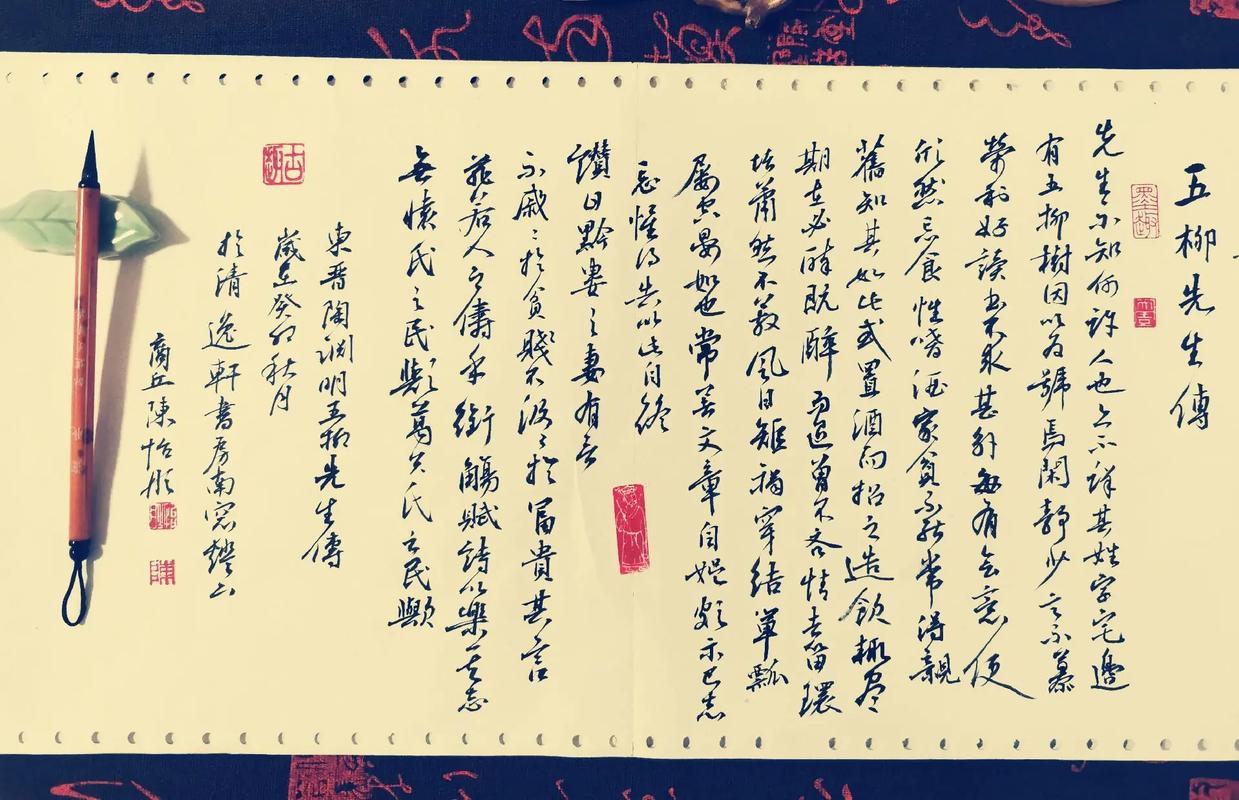 五柳先生傳
墨趣
先生不知何許人也亦不詳其姓字宅邊
有五柳樹因以為號焉閑靜少言不慕
榮利好讀書不求甚解每有會意便
欣然忘食性嗜酒家貧不能常得親
舊知其如此或置酒而招之造飲輒盡
期在必醉既醉而退曾不吝情去留環
堵蕭然不蔽風日短褐穿結簞瓢
屢空晏如也常著文章自娛頗示己志
忘懷得失以此自終
讚曰黔婁之妻有言
不戚〻於貧賤不汲〻於富貴其言
茲若人之儔乎銜觴賦詩以樂其志
無懷氏之民歟葛天氏之民歟
東晉陶淵明五柳先生傳
歲在癸卯秋月
於清逸軒書房南窗燈下
商丘陳怡彤